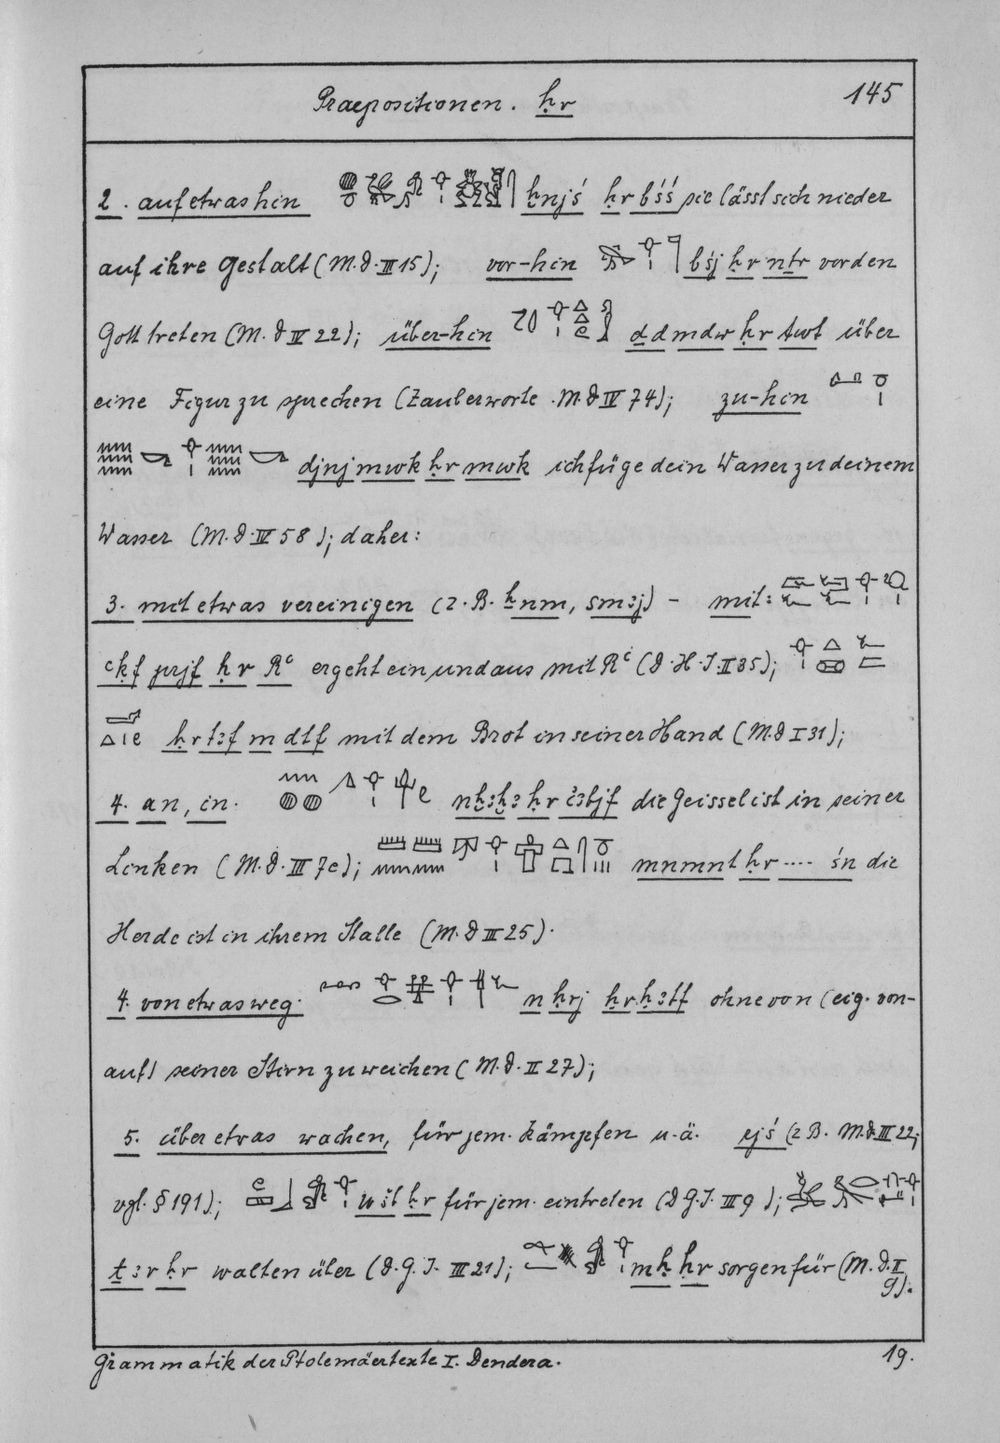 Praepositionen. ḥr 145
2. auf etwas hin ẖnjś ḥr bśś sie lässt sich nieder
auf ihre Gestalt (M.D. III 15); vor-hin bśj ḥr nṯr vor den
Gott treten (M. D IV 22); über-hin ḏd mdw ḥr twt über
eine Figur zu sprechen (Zauberworte. M.D IV 74); zu-hin
djnj mwk ḥr mwk ich füge dein Wasser zu deinem
Wasser (M.D. IV 58); daher:
3. mit etwas vereinigen (z.B. ẖnm, smꜣj) – mit:
ꜥḳf prjf ḥr Rꜥ er geht ein und aus mit Rꜥ (D.H.I. II 35);
ḥr tꜣf m dtf mit dem Brot in seiner Hand (M.D I 31);
4. an, in. nḫꜣḫꜣ ḥr ꜣbjf die Geissel ist in seiner
Linken (M.D. III 7e); mnmnt ḥr .... śn die
Herde ist in ihrem Stalle (M.D III 25).
4. von etwas weg. n ḥrj ḥr ḥꜣtf ohne von (eig. von-
auf) seiner Stirn zu weichen (M.D. II 27);
5. über etwas wachen, für jem. kämpfen u.ä. (z B. M.D. III 22;
vgl. § 191); wšb ḥr für jem. eintreten (D G.I. III 9);
ṯꜣr ḥr walten über (D.G.I. III 21); mḥ ḥr sorgen für (M.D. II
9).
Grammatik der Ptolemäertexte I. Dendera. 19.